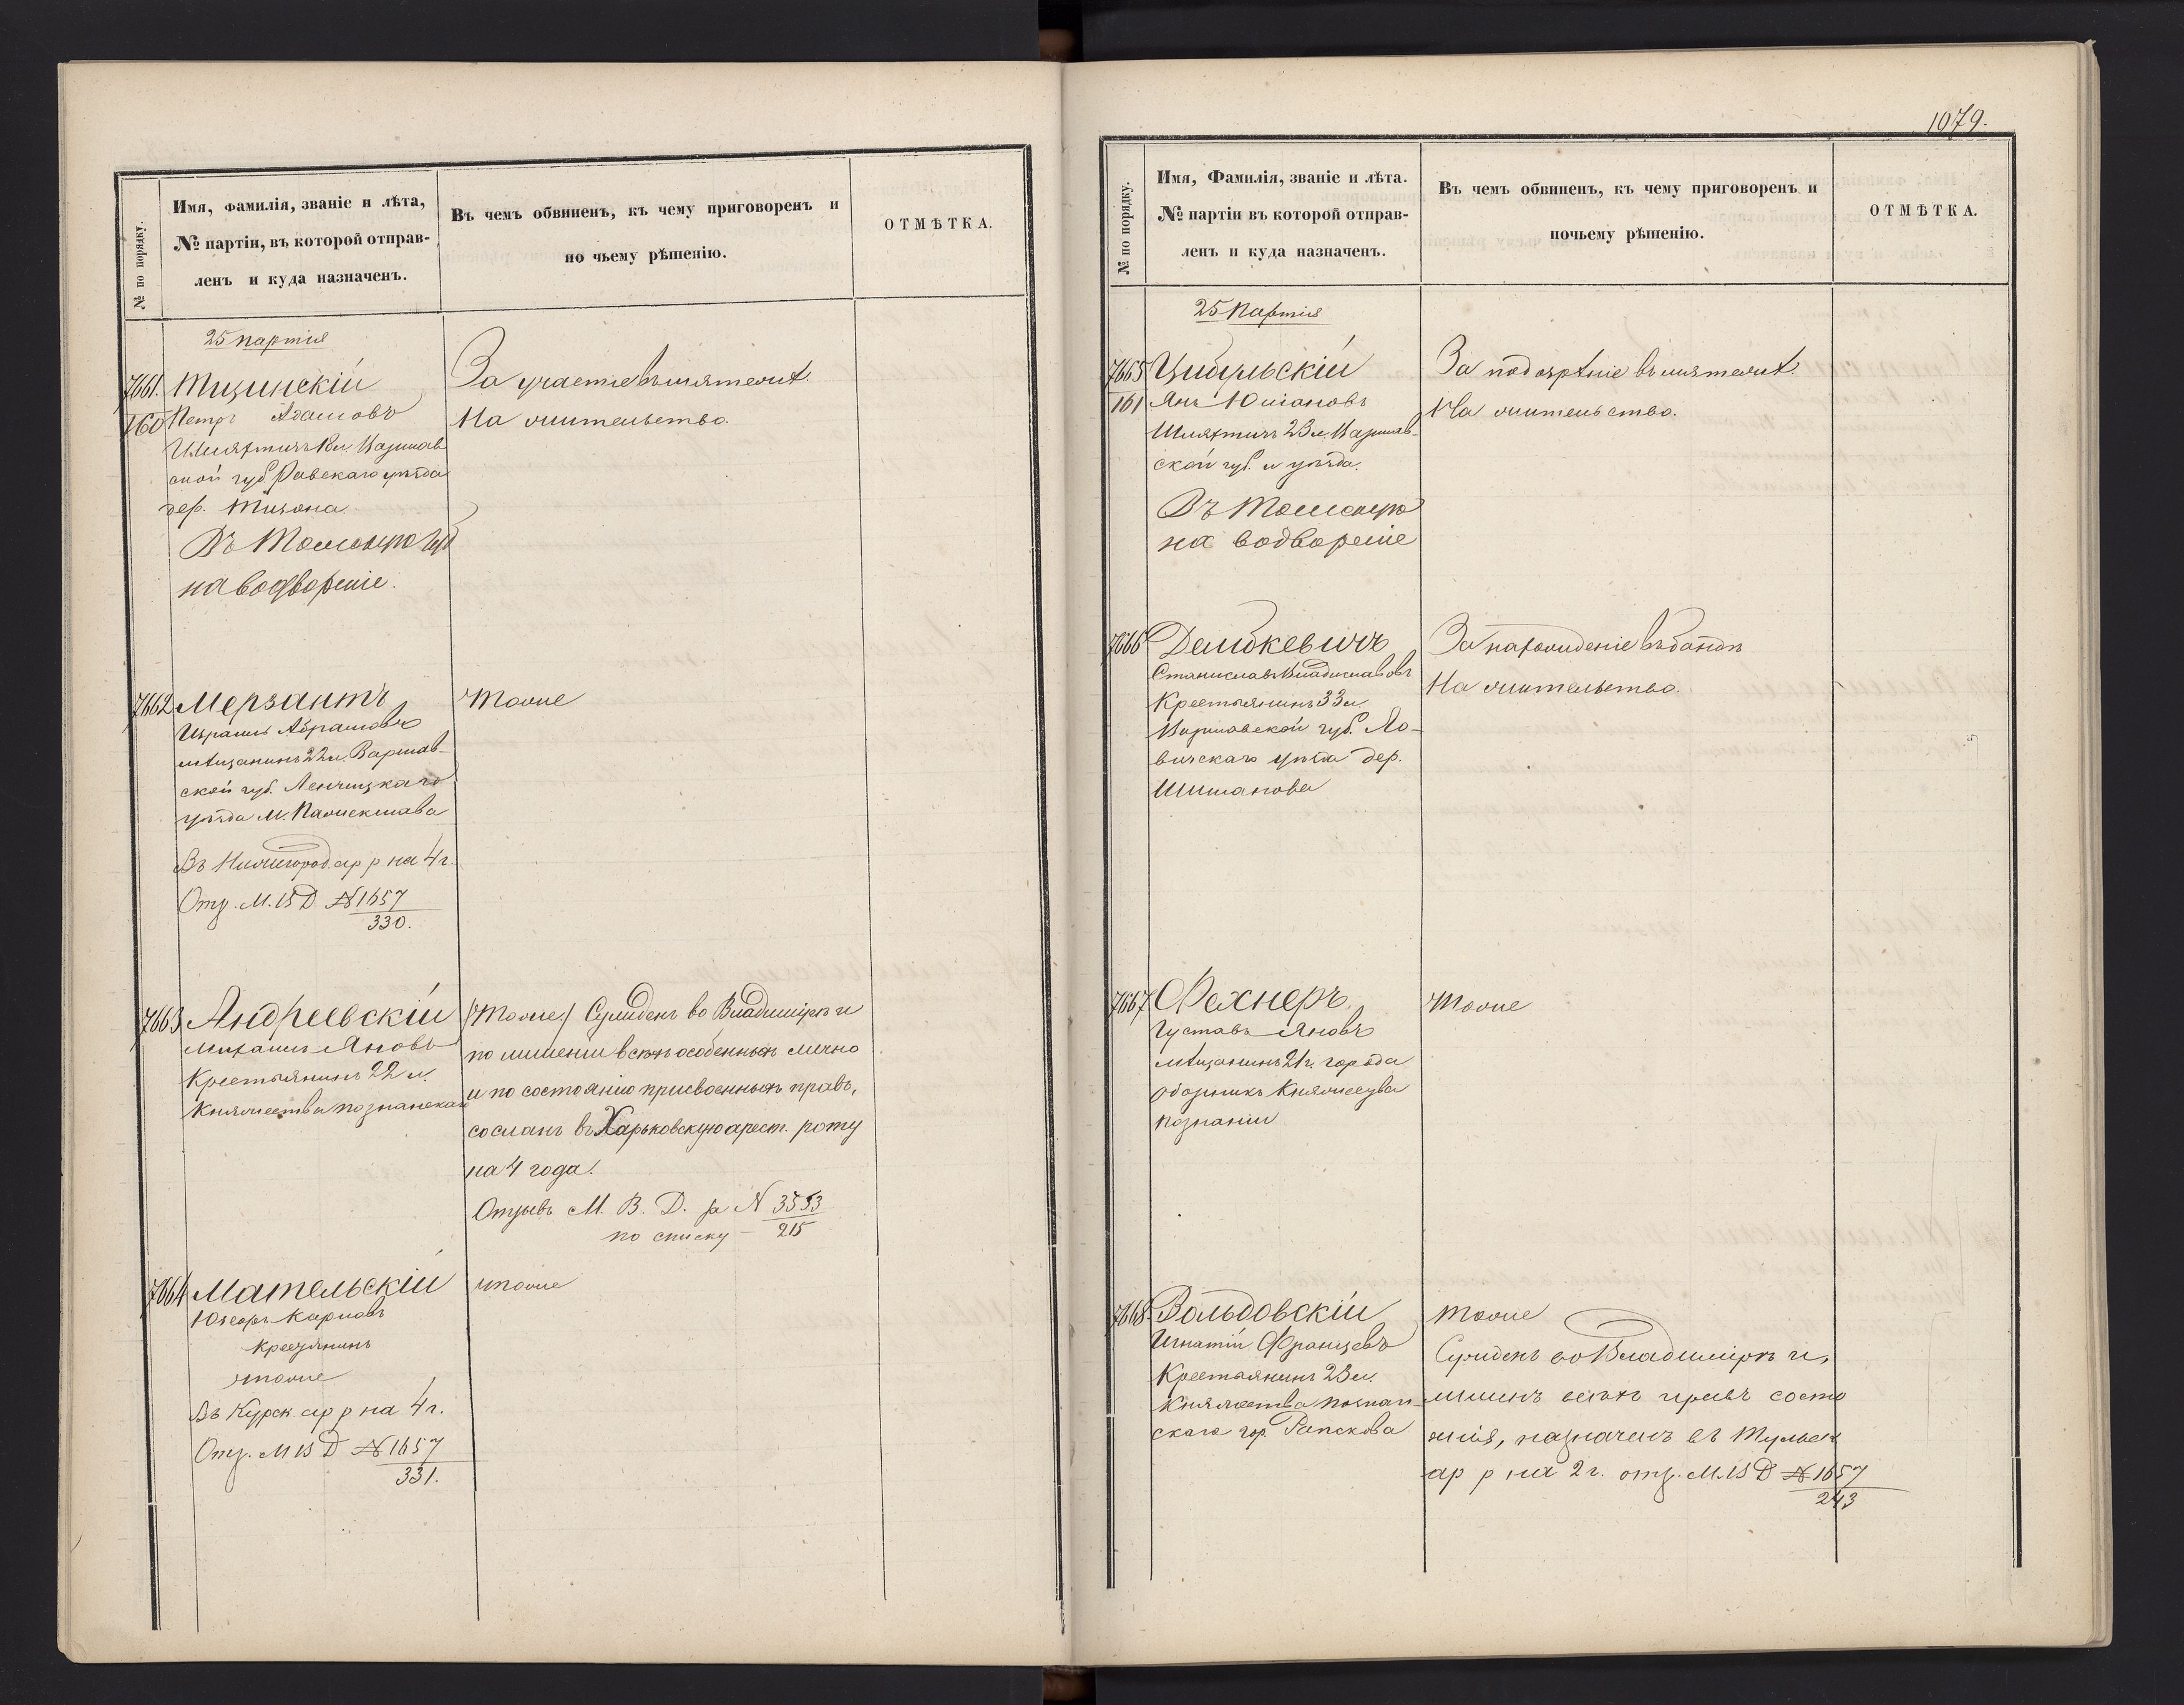 № по порядку.
Имя, Фамилія, званіе и лѣта,
№ партіи, въ которой отправ-
ленъ и куда назначенъ.
Въ чемъ обвиненъ, къ чему приговоренъ и
по чьему рѣшенію.
ОТМѢТКА.
25 партія
7661. Тицинскій
160 Петръ Адамовъ
Шляхтичъ
ской губ. Равскаго уѣзда
дер.
Въ Томскую губ
на водвореніе.
За участіе въ мятежѣ.
На жительство.
7662 Мерзантъ
Израиль Абрамовъ
мѣщанинъ 22 л. Варшав-
ской губ. Ленчицкаго
уѣзда м.
Въ Нижегород. ар р на 4 г.
Отз. М. В Д № 1657
330.
Тоже
7663 Андреевскій
Михаилъ Яновъ
Крестьянинъ 22 л.
Княжества Познанскаго
(Тоже) Сужденъ во Владимірѣ и
по лишеніи всѣхъ особенныхъ лично
и по состоянію присвоенныхъ правъ,
сосланъ въ Харьковскую арест. роту
на 4 года.
Отзывъ М. В. Д. за N 3553
по списку - 215
7664 Мательскій
Карповъ
Крестьянинъ
тоже
Въ Курск ар р на 4 г.
Отз. М В Д № 1657
331.
тоже
1079.
№ по порядку.
Имя, Фамилія, званіе и лѣта.
№ партіи въ которой отправ-
ленъ и куда назначенъ.
Въ чемъ обвиненъ, къ чему приговоренъ и
почьему рѣшенію.
ОТМѢТКА.
25 партія
7665 Цибульскій
161 Янъ Юліановъ
Шляхтичъ 23 л. Варшав-
ской губ. и уѣзда.
Въ Томскую
на водвореніе
За подозрѣніе въ мятежѣ.
На жительство.
7666 Дембкевичъ
Станиславъ Владиславовъ
Крестьянинъ 33 л.
Варшавской губ. Ло-
вичскаго уѣзда дер.
Шиманова
За нахожденіе въ бандѣ
На жительство.
7667 Фехнеръ
Густавъ Яновъ
мѣщанинъ 21 г. города
Оборникъ Княжества
Познани
Тоже
7668 Вольдовскій
Игнатій Францевъ
Крестьянинъ 23 л.
Княжества Познан-
скаго гор.
Тоже
Сужденъ во Владимірѣ и,
лишенъ всѣхъ правъ состо
янія, назначенъ въ Тульск
ар р на 2 г. отз. М. В Д № 1657
243